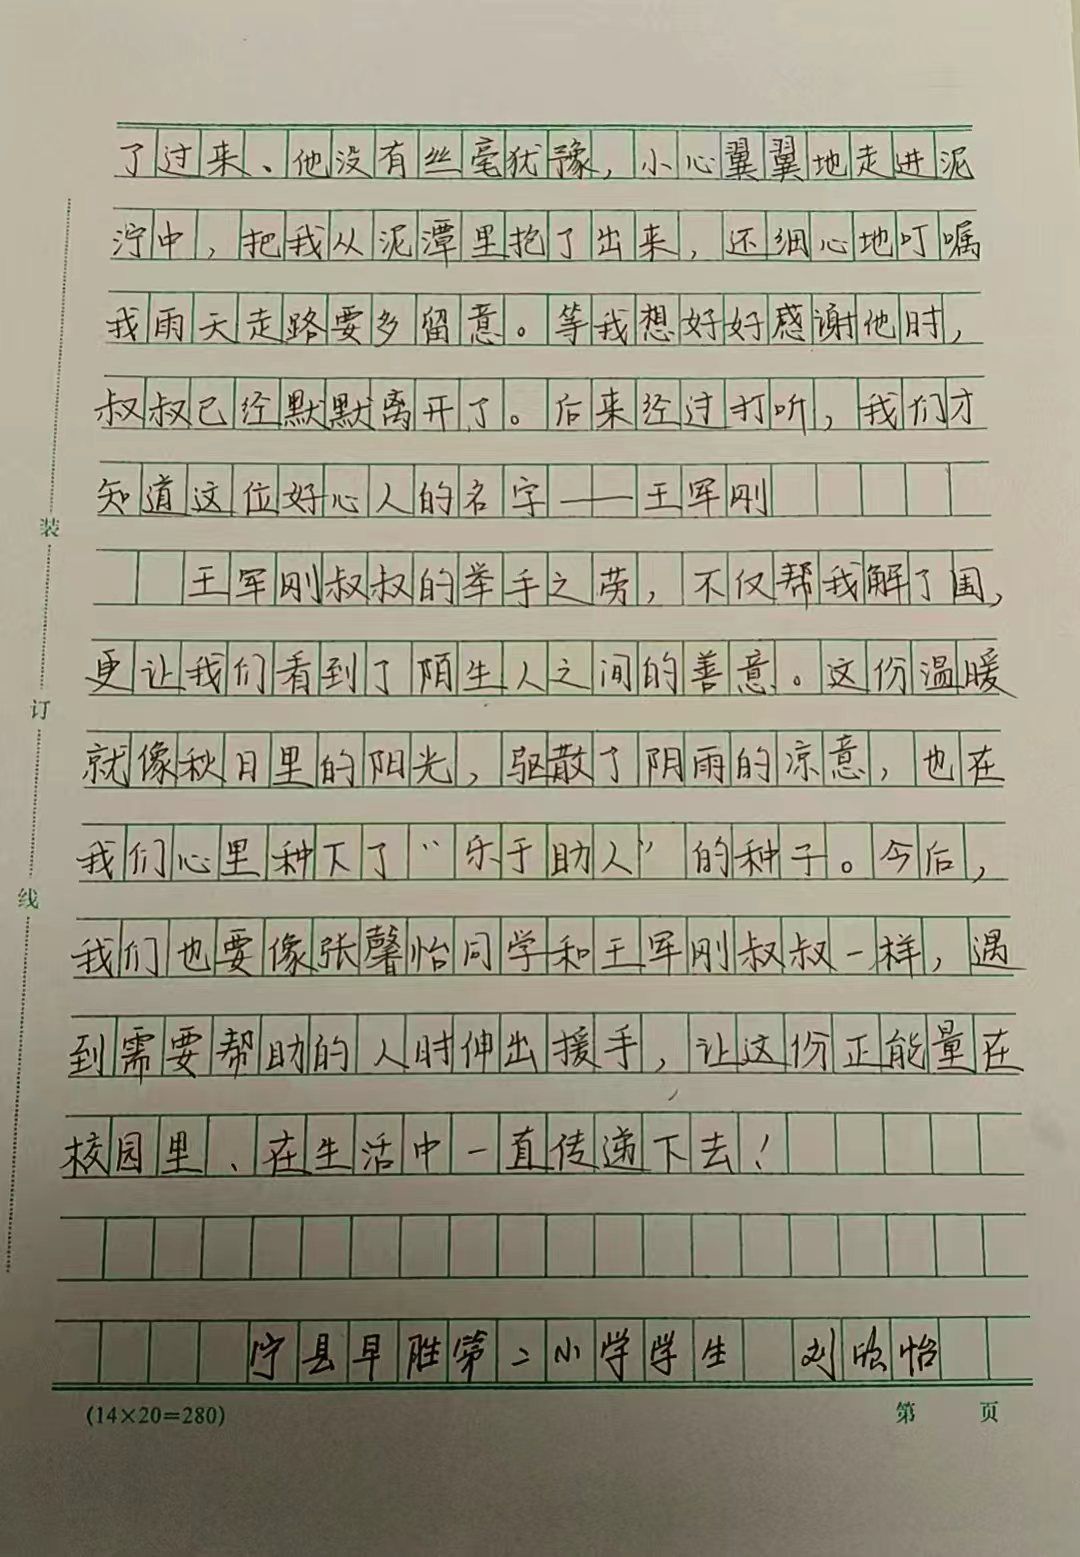 了过来、他没有丝毫犹豫，小心翼翼地走进泥
泞中，把我从泥潭里抱了出来，还细心地叮嘱
我雨天走路要多留意。等我想好好感谢他时，
叔叔已经默默离开了。后来经过打听，我们才
知道这位好心人的名字——王军刚
王军刚叔叔的举手之劳，不仅帮我解了围，
更让我们看到了陌生人之间的善意。这份温暖
就像秋日里的阳光，驱散了阴雨的凉意，也在
我们心里种下了“乐于助人”的种子。今后，
我们也要像张馨怡同学和王军刚叔叔一样，遇
到需要帮助的人时伸出援手，让这份正能量在
校园里、在生活中一直传递下去！
宁县早胜第二小学学生 刘欣怡
(14×20=280)
第 页
装
订
线